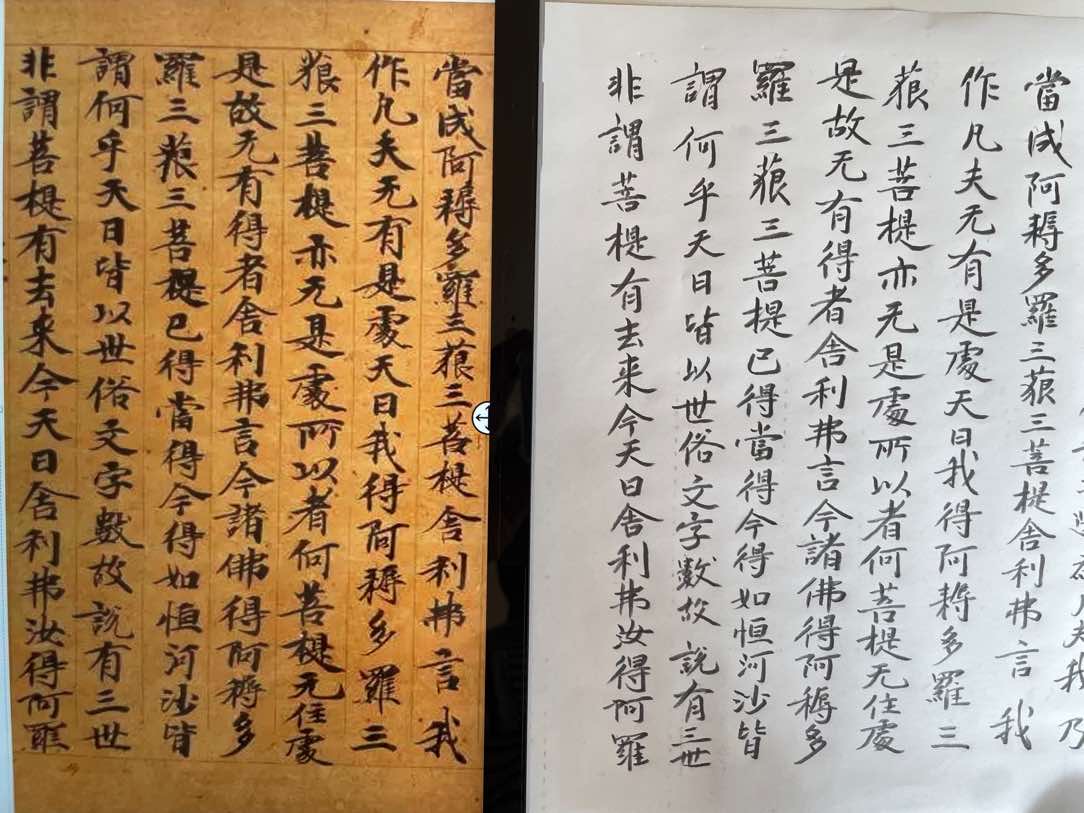 當成阿耨多羅三藐三菩提舍利弗言我
作凡夫无有是處天曰我得阿耨多羅三
藐三菩提亦无是處所以者何菩提无住處
是故无有得者舍利弗言今諸佛得阿耨多
羅三藐三菩提已得當得今得如恒河沙皆
謂何乎天曰皆以世俗文字數故說有三世
非謂菩提有去來今天曰舍利弗汝得阿羅
夫我乃
當成阿耨多羅三藐三菩提舍利弗言我
作凡夫无有是處天曰我得阿耨多羅三
藐三菩提亦无是處所以者何菩提无住處
是故无有得者舍利弗言今諸佛得阿耨多
羅三藐三菩提已得當得今得如恒河沙皆
謂何乎天曰皆以世俗文字數故說有三世
非謂菩提有去來今天曰舍利弗汝得阿羅